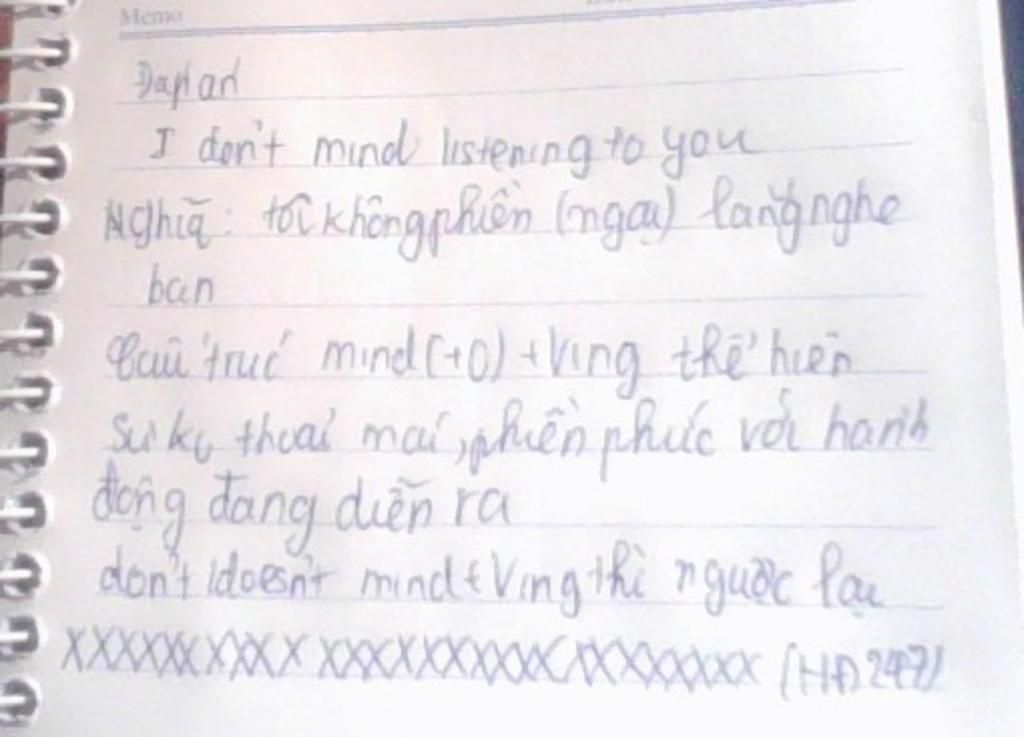 Memo
Đáp án
I don't mind listening to you
Nghĩa: tôi không phiền (ngại) lắng nghe
bạn
Cấu trúc mind (+O) + Ving thể hiện
sự kg thoải mái, phiền phức với hành
động đang diễn ra
don't / doesn't mind + Ving thì ngược lại
XXXXXXXXXX XXXXXXXXXXXXXXXXXX (HĐ247)